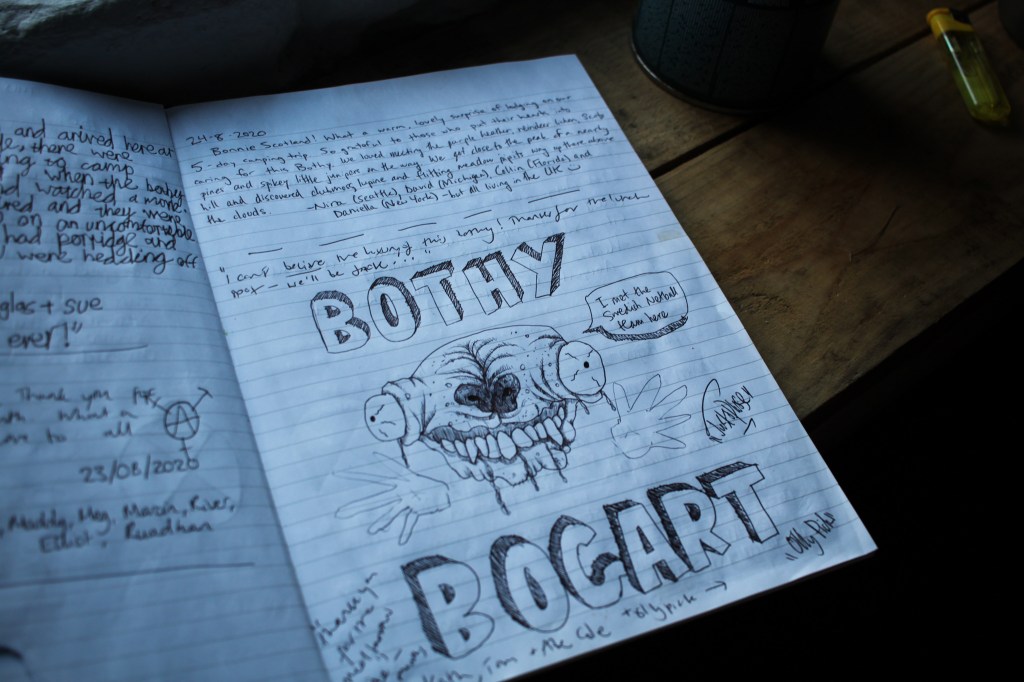 and arived here at
there were
so camp
when the bothy
watched a movie.
and they were
on an uncomfortable
had porridge and
were hedding off
glas + sue
ever!"
Thank you for
What a
to all
23/08/2020
Maddy, Meg, Marsh, River,
Elliot, Ruadhan
24-8-2020
Bonnie Scotland! What a warm, lovely surprise of lodging on our
5-day camping trip. So grateful to those who put their hearts into
caring for this Bothy. We loved meeting the purple heather, reindeer lichen, Scots
pines and spikey little junipers on the way. We got close to the peak of a nearby
hill and discovered clubmoss, lupine and flitting meadow pipits way up there above
the clouds. -Nina (Seattle), David (Michigan), Collin (Florida) and
Danielle (New York) - but all living in the UK
"I can't believe the luxury of this bothy! Thanks for the lunch
spot - we'll be back . . . "
BOTHY
I met the
Swedish Netball
team here
A
BOCART
"Olly
Thanks
for the
+ olly